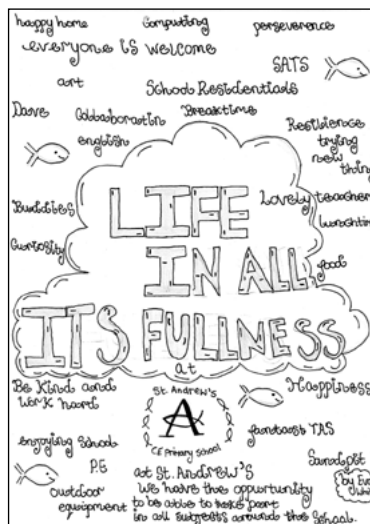 happy home
Computing
perseverence
everyone is welcome
SATS
art
School Residentials
Dave
Collaboratin
Breaktime
english
Resilience
trying
new
thin
Buddies
Lovely teacher
lunchtim
Curiosity
food
LIFE
IN ALL
ITS FULLNESS
at
Be Kind and
Work hard
St. Andrew's
A
CE Primary School
Happiness
fantastic TAS
enjoying School
P.E
outdoor
equipment
Sandpit
by Eva
at St. ANDREW'S
We have the opportunity
to be able to take part
in all subjects around the School.